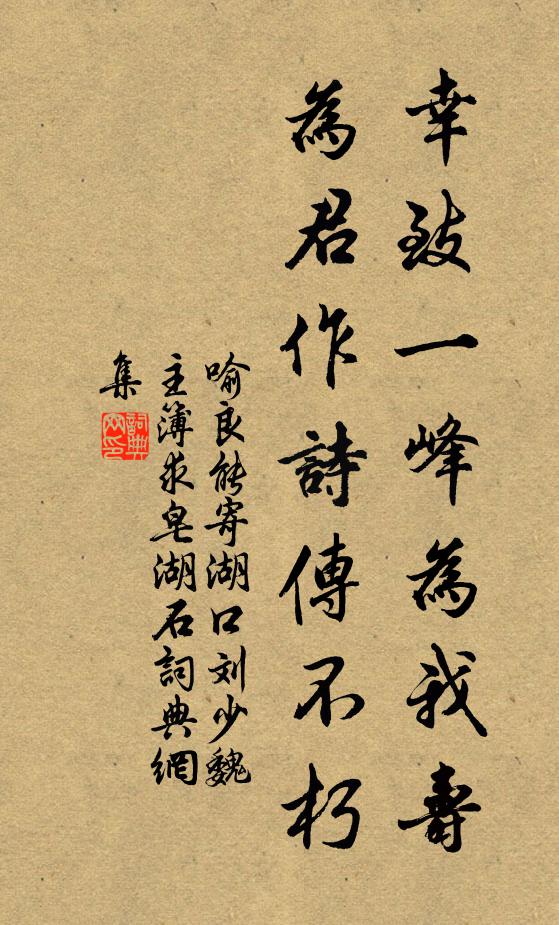 幸致一峰為我壽
為君作詩傳不朽
喻良能寄湖口刘少魏
主簿求皂湖石詞典網
集
詞典網印